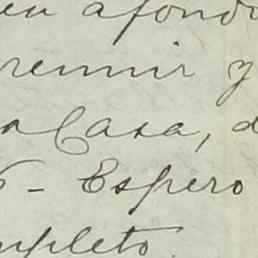 en afondo
remir y
a Casa, d
- Espero
mpleto.